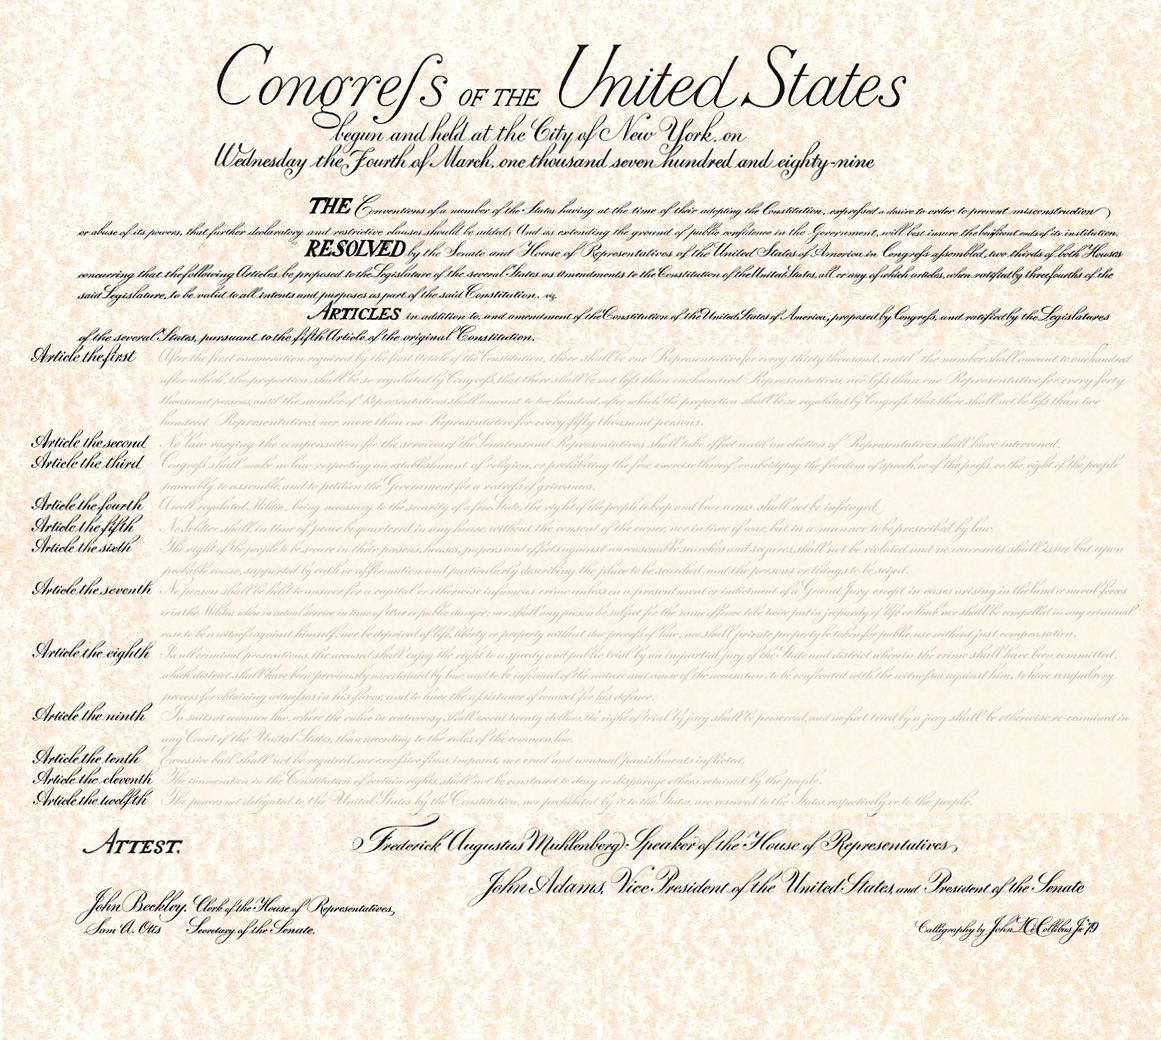 Congreſs OF THE United States
begun and held at the City of New York, on
Wednesday the Fourth of March, one thousand seven hundred and eighty-nine
THE Conventions of a number of the States having at the time of their adopting the Constitution, expreſsed a desire to order to prevent misconstruction
or abuse of its powers, that further declaratory and restrictive clauses should be added; And as extending the ground of public confidence in the Government, will best insure the ends of its institution.
RESOLVED by the Senate and House of Representatives of the United States of America in Congreſs aſsembled, two thirds of both Houses
concurring that the following Articles, be proposed to the Legislature of the several States as amendments to the Constitution of the United States, all or any of which articles, when ratified by three fourths of the
said Legislature, to be valid to all intents and purposes as part of the said Constitution. viz.
ARTICLES in addition to, and amendment of the Constitution of the United States of America, proposed by Congreſs, and ratified by the Legislatures
of the several States, pursuant to the fifth Article of the original Constitution.
Article the first After the first by the first Article of the Constitution there shall be one Representative for every thirty thousand, until the number shall amount to one hundred
after which, the proportion shall be so regulated by Congreſs, that there shall be not leſs than one hundred Representatives, nor leſs than one Representative for every forty
thousand persons, until the number of Representatives shall amount to two hundred after which the proportion shall be so regulated by Congreſs, that there shall not be leſs than two
hundred Representatives, nor more than one Representative for every fifty thousand persons.
Article the second No law varying the compensation for the services of the Senators and Representatives shall take effect, until an election of Representatives shall have intervened.
Article the third Congreſs shall make no law respecting an establishment of religion, or prohibiting the free exercise thereof, or abridging the freedom of speech, or of the preſs, or the right of the people
peaceably to assemble, and to petition the Government for a redreſs of grievances.
Article the fourth A well regulated Militia, being necessary to the security of a free State, the right of the people to keep and bear arms shall not be infringed.
Article the fifth No Soldier shall in time of peace be quartered in any house without the consent of the owner nor in time of war, but in a manner to be prescribed by law.
Article the sixth The right of the people to be secure in their persons, houses, papers and effects against unreasonable searches and seizures, shall not be violated and no warrants shall issue but upon
probable cause, supported by oath or affirmation and particularly describing the place to be searched, and the persons or things to be seized.
Article the seventh No person shall be held to answer for a capital or otherwise infamous crime unless on a presentment or indictment of a Grand Jury except in cases arising in the land or naval forces
or in the Militia when in actual service in time of War or public danger; nor shall any person be subject for the same offence to be twice put in jeopardy of life or limb nor shall be compelled in any criminal
case to be a witneſs against himself, nor be deprived of life, liberty or property without due proceſs of law, nor shall private property be taken for public use without just compensation.
Article the eighth In all criminal prosecutions, the accused shall enjoy the right to a speedy and public trial by an impartial jury of the State and district wherein the crime shall have been committed,
which district shall have been previously ascertained by law and to be informed of the nature and cause of the accusation, to be confronted with the witneſses against him, to have compulsory
proceſs for obtaining witneſses in his favor, and to have the aſsistance of counsel for his defence.
Article the ninth In suits at common law, where the value in controversy shall exceed twenty dollars, the right of trial by jury shall be preserved, and no fact tried by a jury shall be otherwise re-examined in
any Court of the United States, than according to the rules of the common law.
Article the tenth Exceſsive bail shall not be required, nor exceſsive fines imposed, nor cruel and unusual punishments inflicted.
Article the eleventh The enumeration in the Constitution of certain rights, shall not be construed to deny or disparage others retained by the people.
Article the twelfth The powers not delegated to the United States by the Constitution, nor prohibited by it to the States, are reserved to the States respectively or to the people.
ATTEST,
Frederick Augustus Muhlenberg Speaker of the House of Representatives,
John Adams, Vice President of the United States, and President of the Senate
John Beckley, Clerk of the House of Representatives,
Sam A. Otis Secretary of the Senate.
Calligraphy by John McCollibus Jr '79